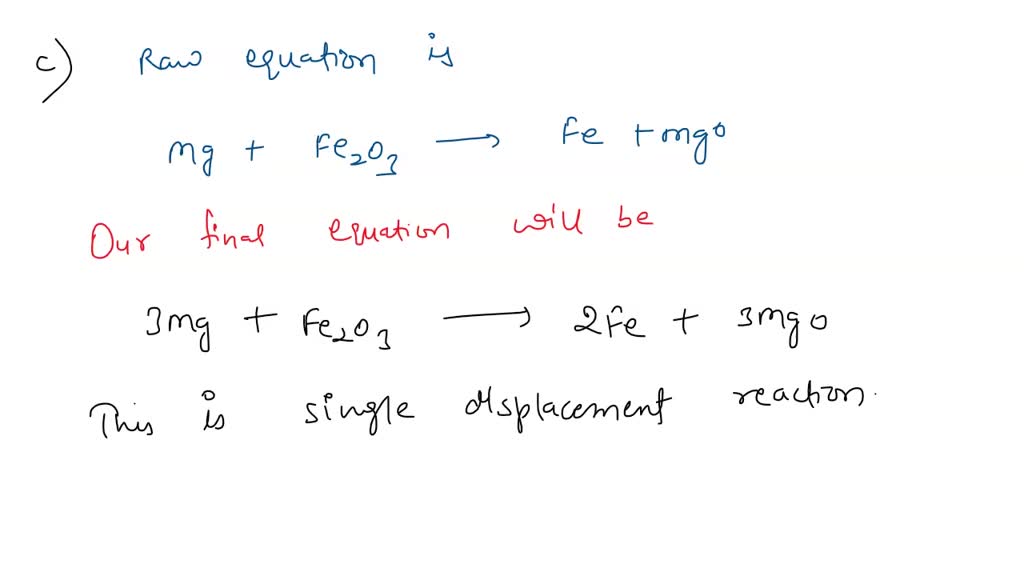 c) Raw equation is
mg + Fe₂O₃ → Fe + mgo
Our final equation will be
3mg + Fe₂O₃ → 2Fe + 3mgo
This is single displacement reaction.